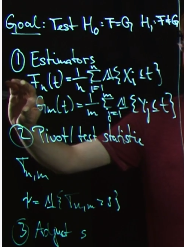 Goal: Test H₀: F=G, H₁: F≠G
① Estimators
Fₙ(t) = 1/n Σᵢ₌₁ⁿ 𝟙{Xᵢ ≤ t}
Gₘ(t) = 1/m Σⱼ₌₁ᵐ 𝟙{Yⱼ ≤ t}
② Pivot/test statistic
Tₙ,ₘ
ψ = 𝟙{Tₙ,ₘ > s}
③ Adjust s